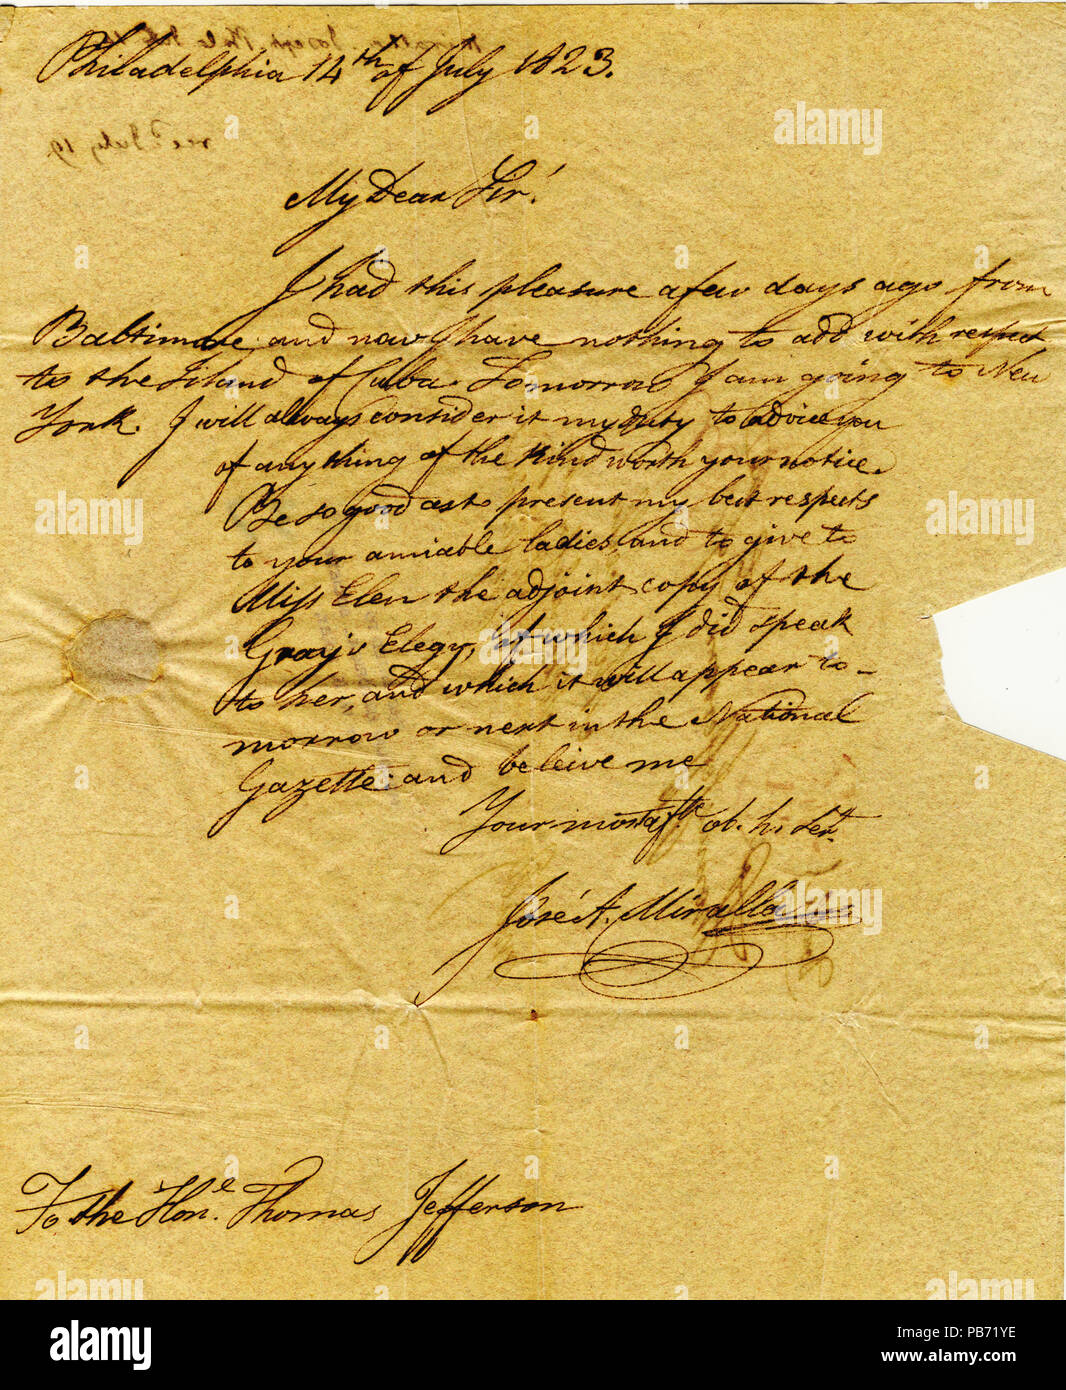 Philadelphia 14th of July 1823.
recd July 19
My Dear Sir!
I had this pleasure a few days ago from
Baltimore, and now I have nothing to add with respect
to the Island of Cuba. Tomorrow I am going to New
York. I will always consider it my duty to advice you
of any thing of the kind worth your notice.
Be so good as to present my best respects
to your amiable ladies, and to give to
Miss Elen the adjoint copy of the
Gray's Elegy, of which I did speak
to her, and which it will appear to-
morrow or next in the National
Gazette: and beleive me
Your most afte. ob. h. Sert.
José A. Miralla
To the Honle. Thomas Jefferson
alamy
Image ID: PB71YE
www.alamy.com